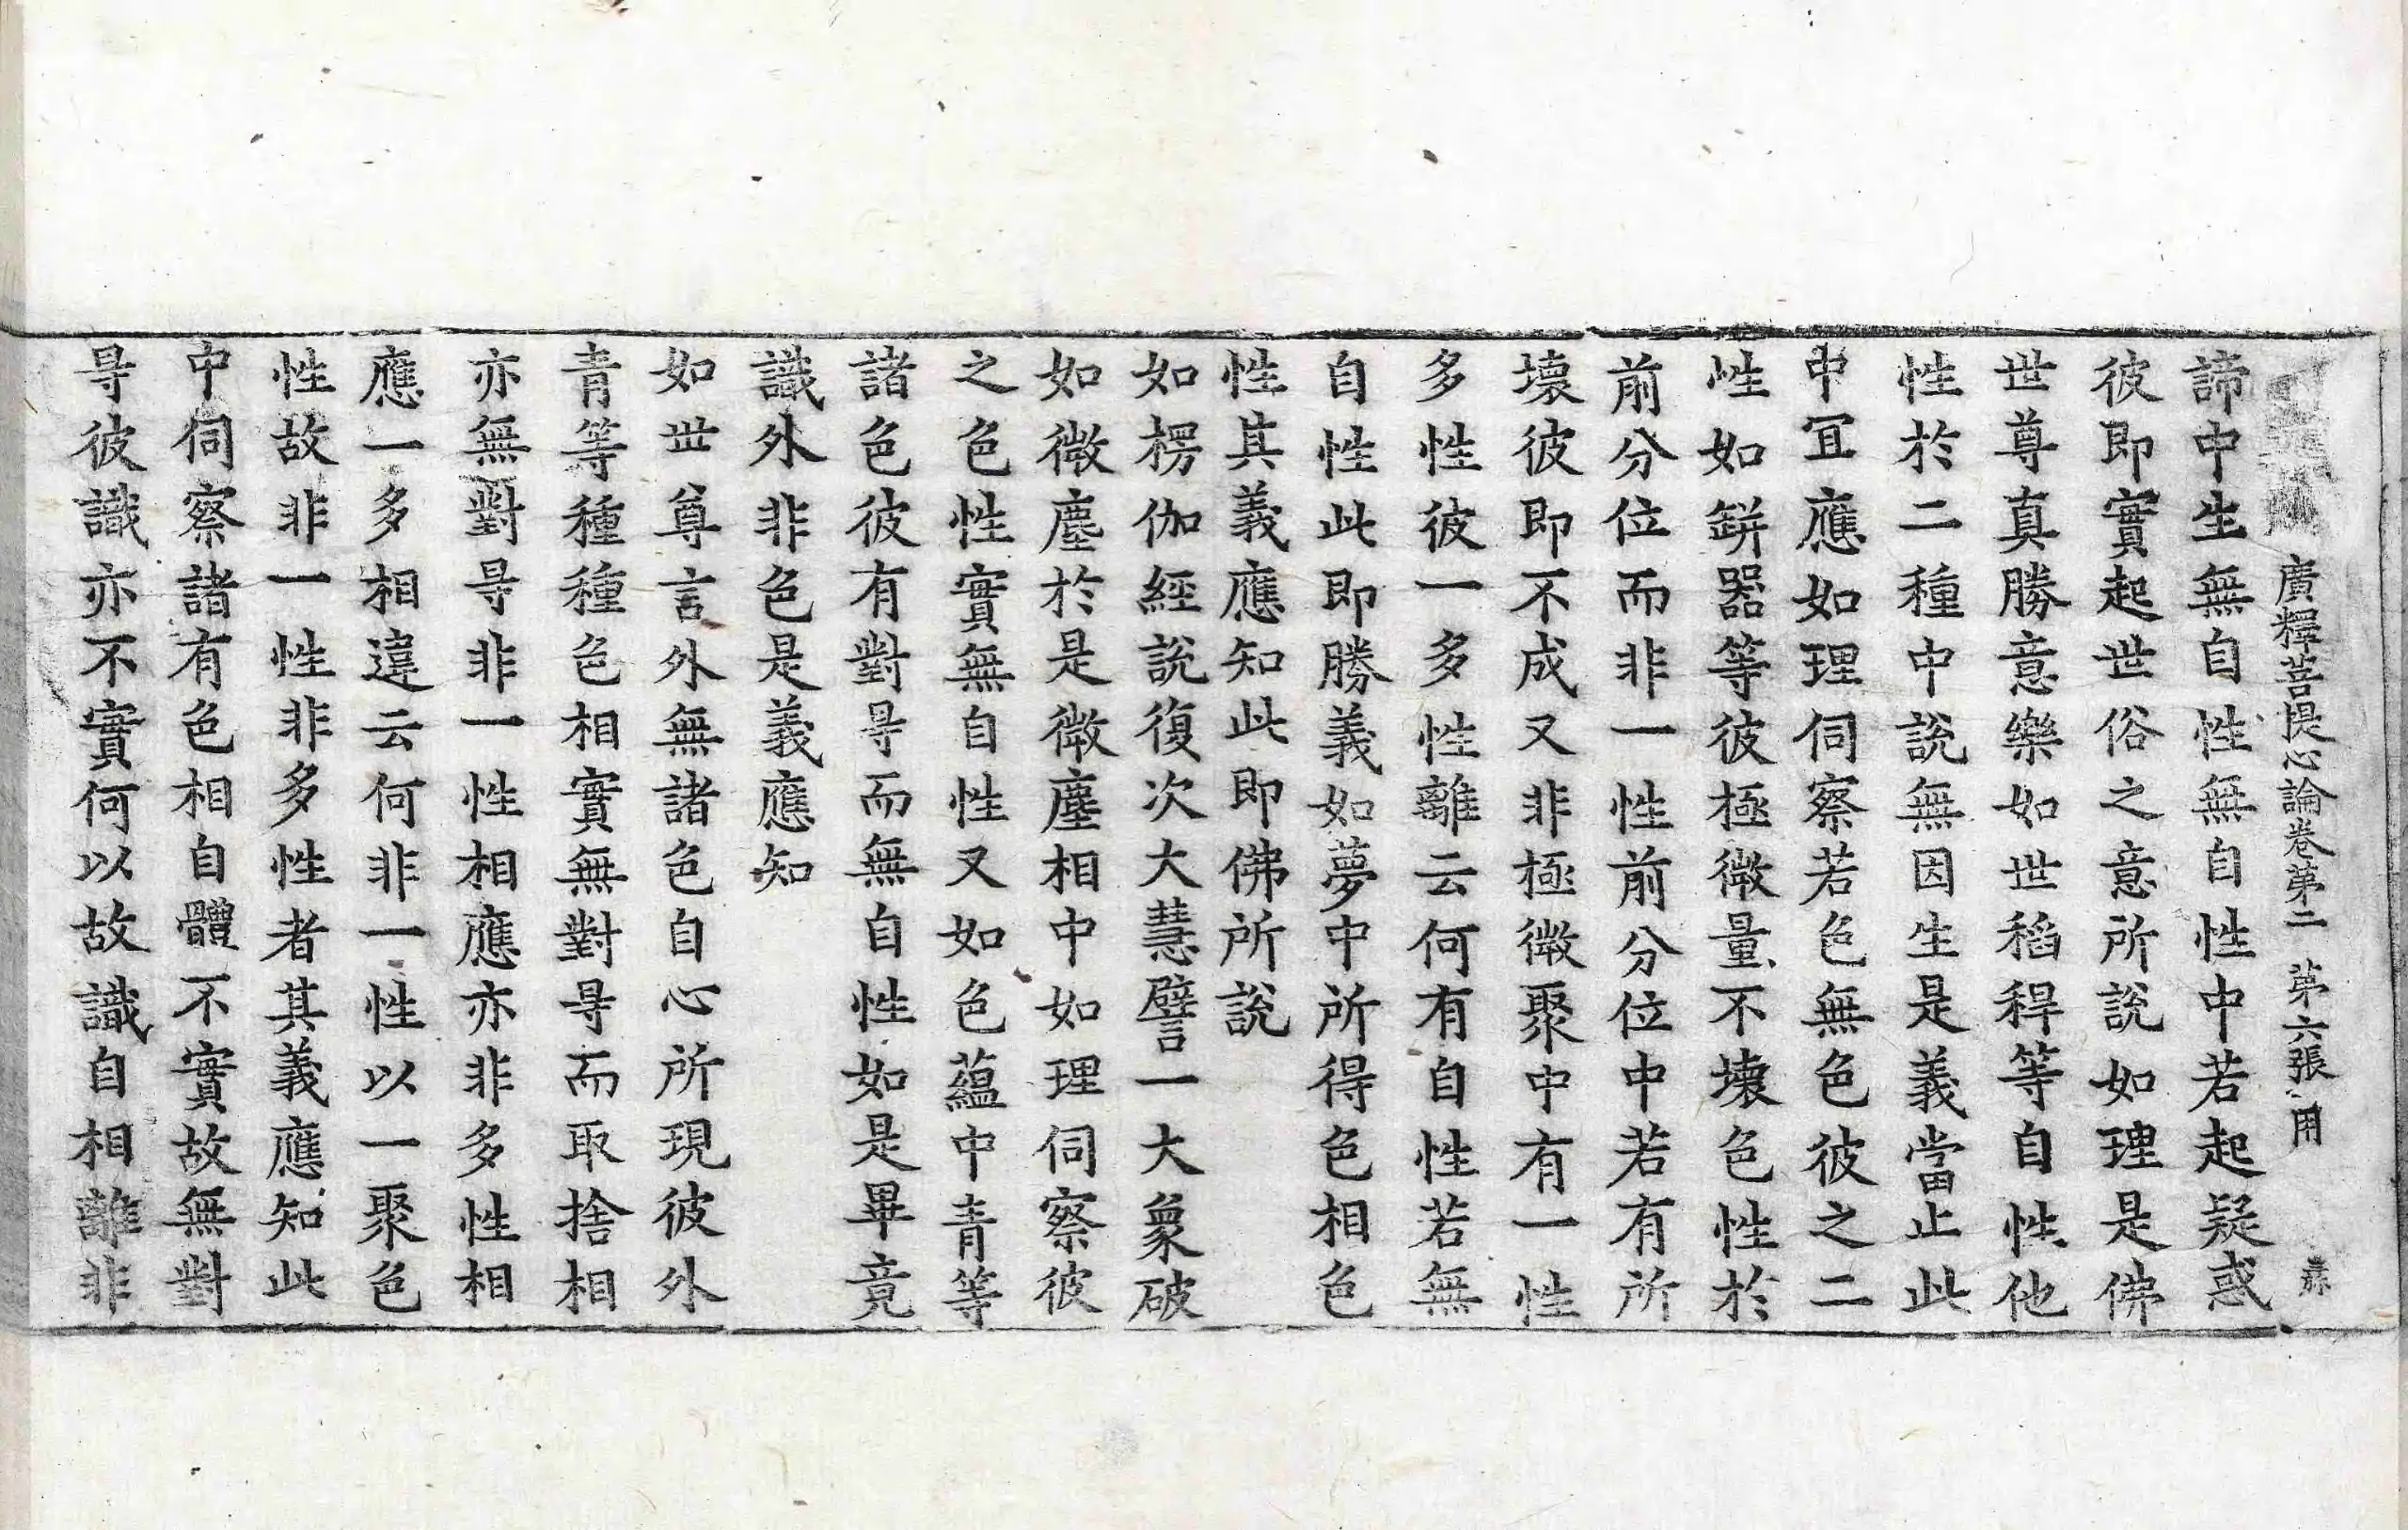 廣釋菩提心論卷第二　第六張　用
諦中生無自性無自性中若起疑惑
彼即實起世俗之意所說如理是佛
世尊真勝意樂如世稻稈等自性他
性於二種中說無因生是義當止此
中冝應如理伺察若色無色彼之二
性如缾器等彼極微量不壞色性於
前分位而非一性前分位中若有所
壞彼即不成又非極微聚中有一性
多性彼一多性離云何有自性若無
自性此即勝義如夢中所得色相色
性其義應知此即佛所說
如楞伽經說復次大慧譬一大象破
如微塵於是微塵相中如理伺察彼
之色性實無自性又如色蘊中青等
諸色彼有對㝵而無自性如是畢竟
識外非色是義應知
如世尊言外無諸色自心所現彼外
青等種種色相實無對㝵而取捨相
亦無對㝵非一性相應亦非多性相
應一多相違云何非一性以一聚色
性故非一性非多性者其義應知此
中伺察諸有色相自體不實故無對
㝵彼識亦不實何以故識自相離非